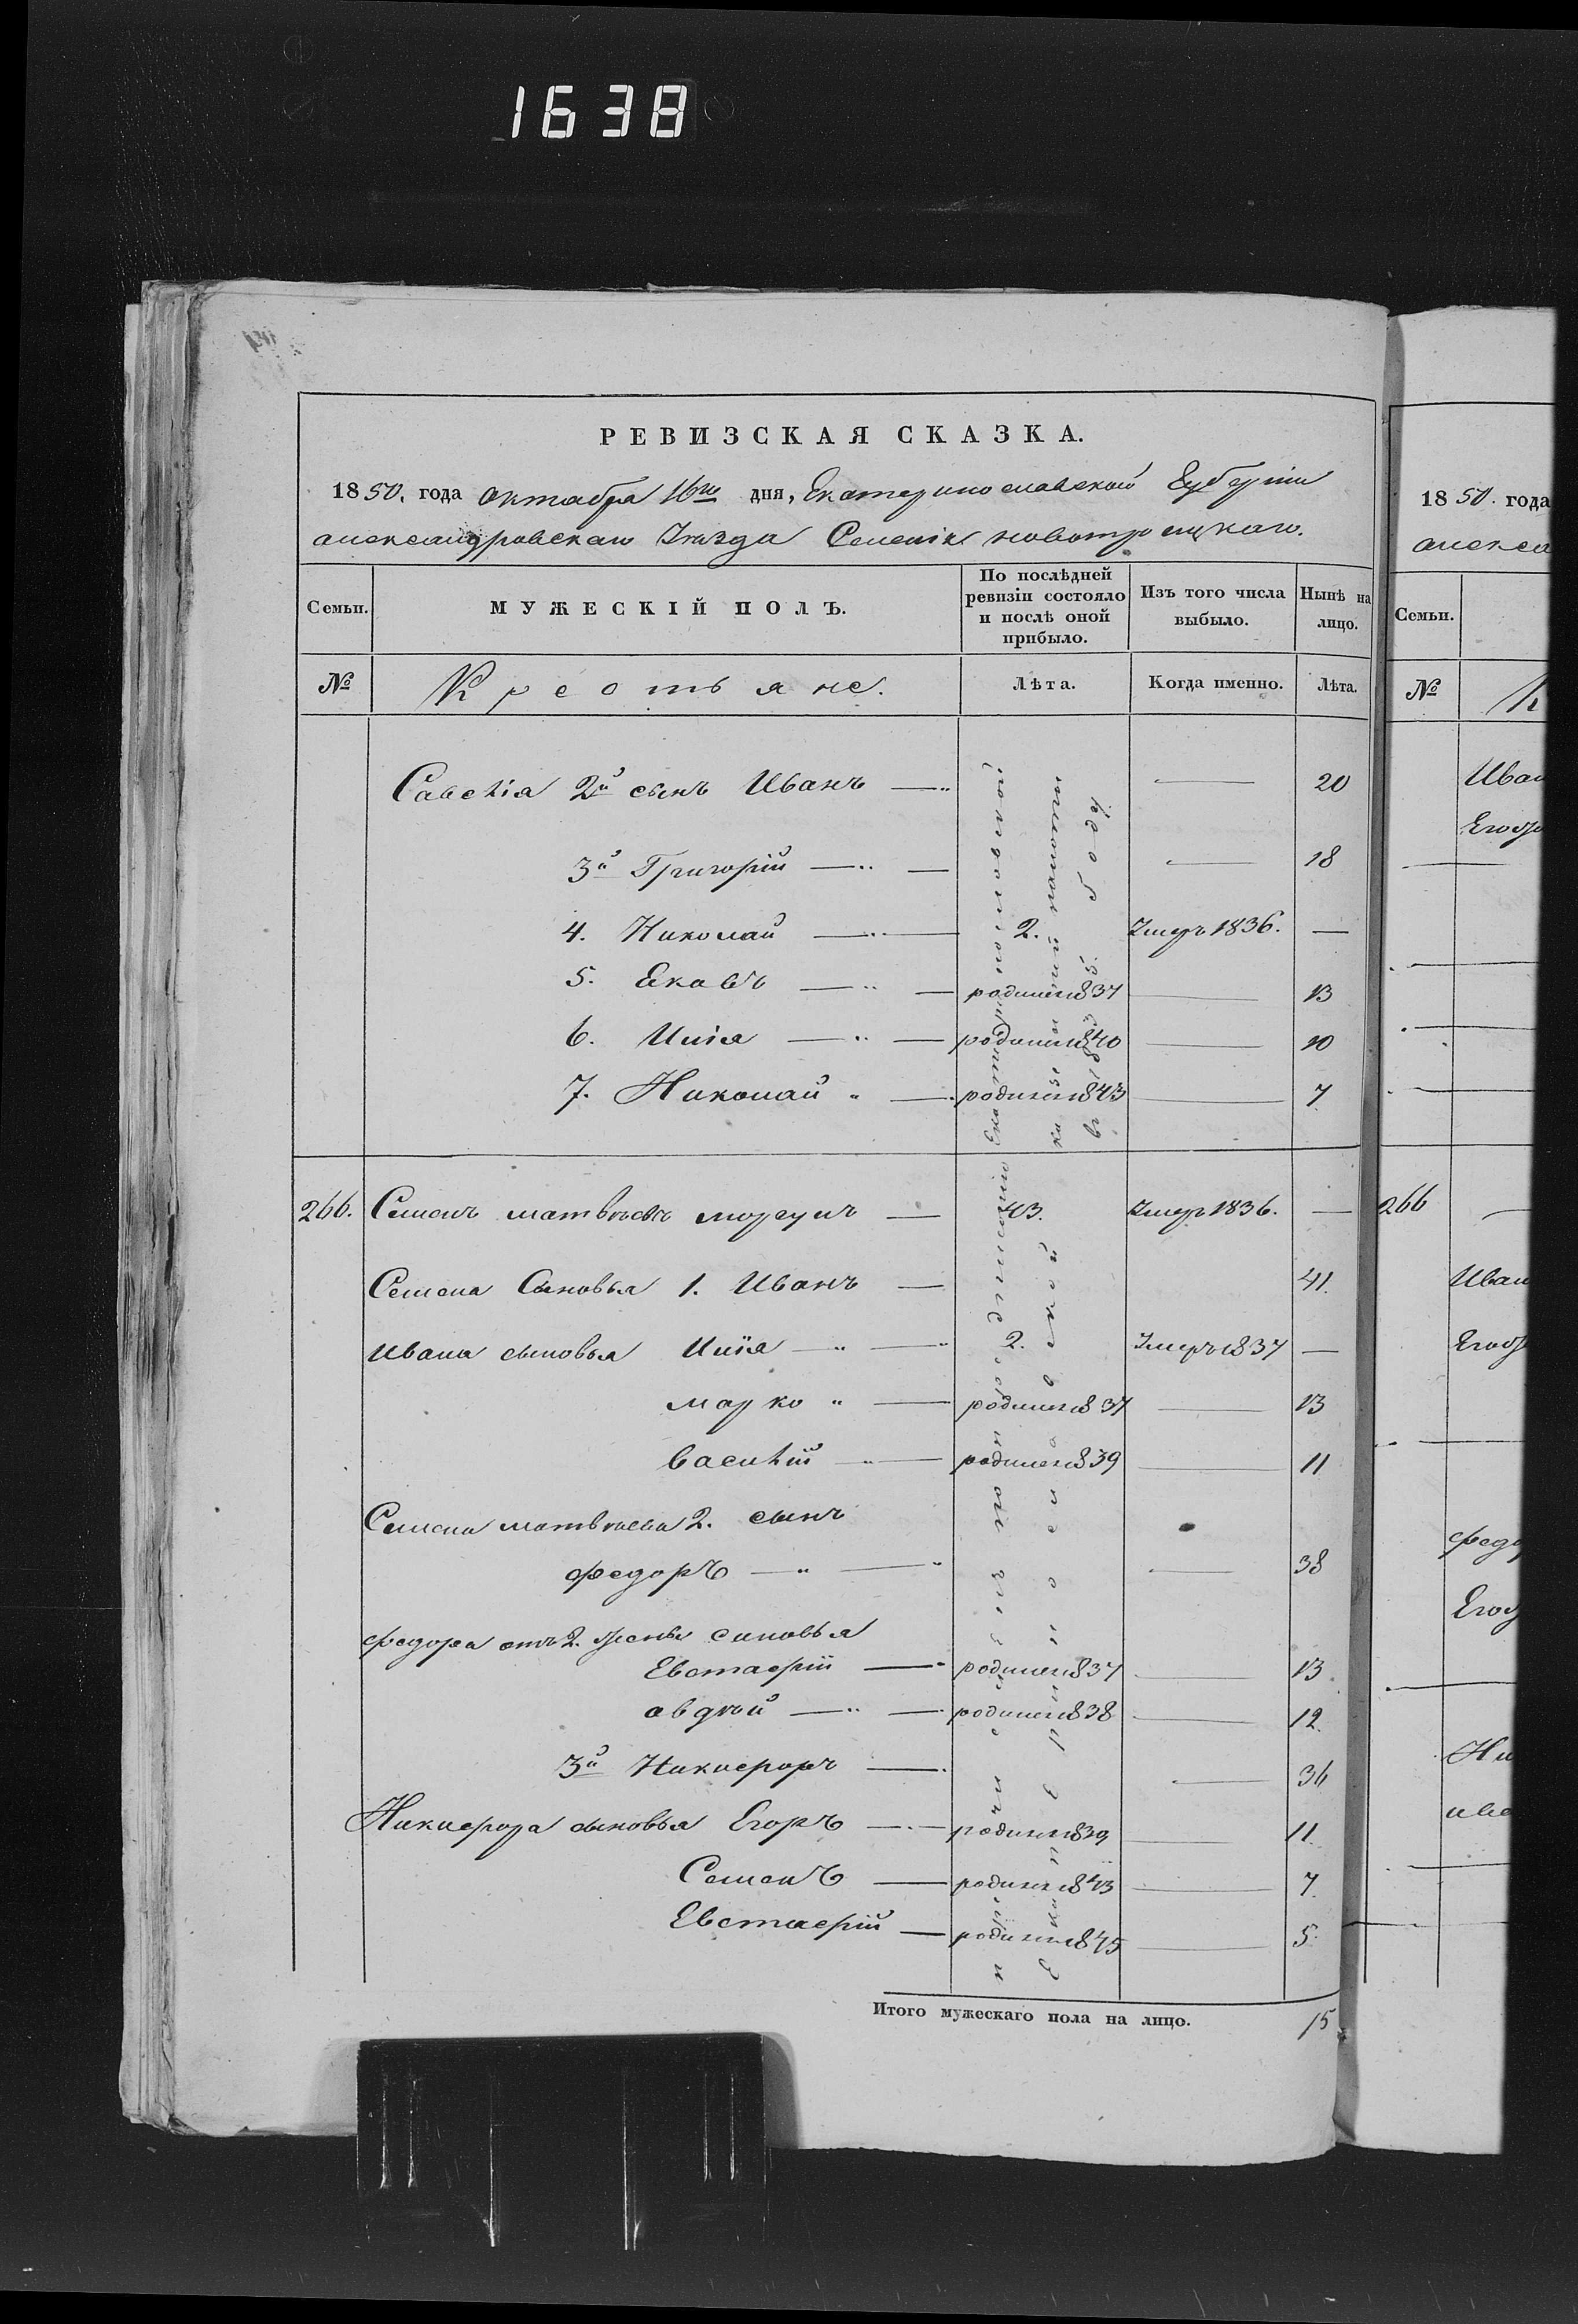 1638
РЕВИЗСКАЯ СКАЗКА.
1850. года октабра 16го дня, Екатеринославской Губерніи
александровскаго Уѣзда Селенія новотроицкаго.
Семьи. МУЖЕСКІЙ ПОЛЪ. По послѣдней ревизіи состояло и послѣ оной прибыло. Изъ того числа выбыло. Нынѣ на лицо.
№ Крестьяне. Лѣта. Когда именно. Лѣта.
Савелія 2й сынъ Иванъ — 20
3й Григорій — 18
4. Николай — 2. Умеръ 1836. —
5. Яковъ — родился 1837 — 13
6. Илія — родился 1840 — 10
7. Николай — родился 1843 — 7
266. Семенъ матвѣевъ моргунъ — 43. Умеръ 1836. —
Семена Сыновья 1. Иванъ — 41.
Ивана сыновья Илія — 2. Умеръ 1837 —
марко — родился 1837 — 13
василій — родился 1839 — 11
Семена матвѣева 2. сынъ
федоръ — 38
федора отъ 2. жены синовья
Евстафій — родился 1837 — 13
авдѣй — родился 1838 — 12
3й Никифоръ — 36
Никифора сыновья Егоръ — родился 1839 — 11
Семенъ — родился 1843 — 7
Евстафій — родился 1845 — 5
Итого мужескаго пола на лицо. 15
въ 1835. году
1850. года
алекса
Семьи.
№ К
Иван
Егор
266
Иван
Федо
Ни